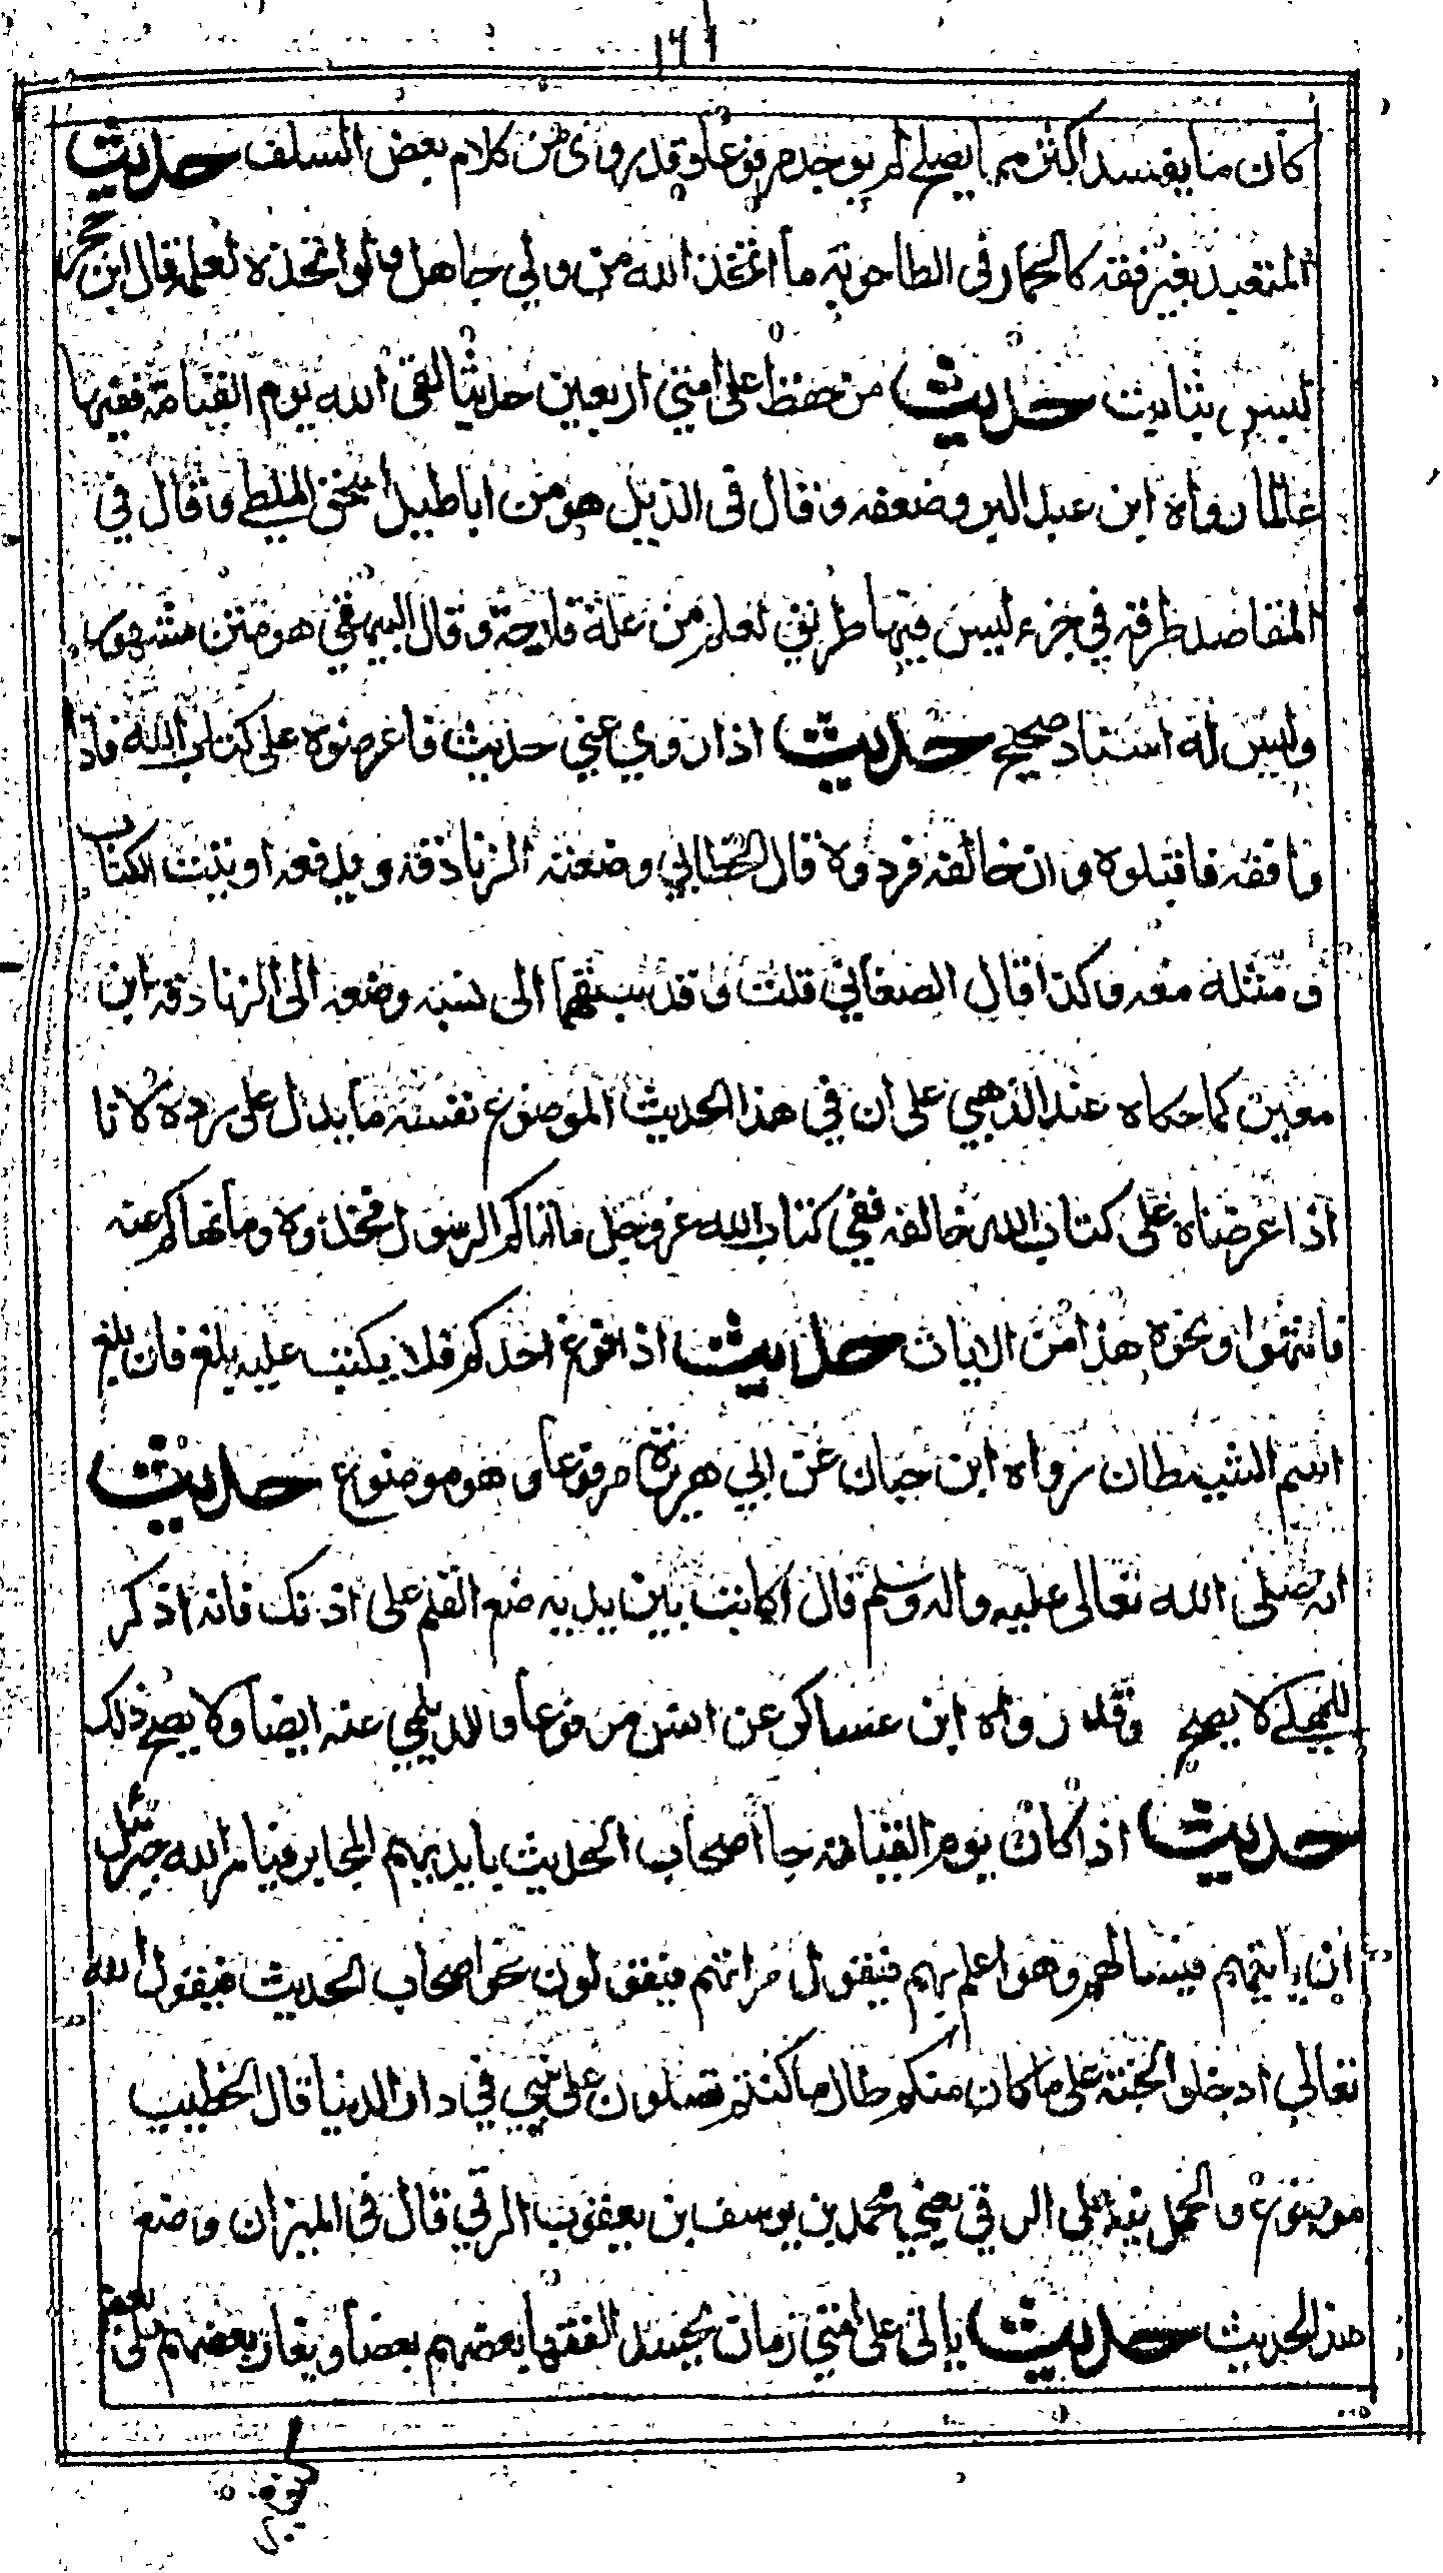 كان ما يفسد اكثر مما يصلح لم يوجد مرفوعا وقد روى من كلام بعض السلف حديث
المتعبد بغير فقه كالحمار فى الطاحونة ما اتخذ الله من ولي جاهل ولو اتخذه لعلمه قال ابن حجر
ليس بثابت حديث من حفظ على امتي اربعين حديثا لقى الله يوم القيامة فقيها
عالما رواه ابن عبد البر وضعفه وقال فى الذيل هو من اباطيل اسحق الملطي وقال في
المقاصد طرقه في جزء ليس فيها طريق تسلم من علة قادحة وقال البيهقي هو متن مشهور
وليس له اسناد صحيح حديث اذا روي عني حديث فاعرضوه على كتاب الله فاذا
وافقه فاقبلوه وان خالفه فردوه قال الخطابي وضعته الزنادقة ويدفعه اوتيت الكتاب
ومثله معه وكذا قال الصغاني قلت وقد سبقهما الى نسبه وضعه الى الزنادقة ابن
معين كما حكاه عند الذهبي على ان في هذا الحديث الموضوع نفسه ما يدل على رده لانا
اذا عرضناه على كتاب الله خالفه ففي كتاب الله عز وجل ما اتاكم الرسول فخذوه وما نهاكم عنه
فانتهوا ونحوه هذا من الايات حديث اذا فرغ احدكم فلا يكتب عليه بلغ فان بلغ
اسم الشيطان رواه ابن حبان عن ابي هريرة مرفوعا وهو موضوع حديث
انه صلى الله تعالى عليه واله وسلم قال لكاتب بين يديه ضع القلم على اذنك فانه اذكر
للمملي لا يصح وقد رواه ابن عساكر عن انس مرفوعا والديلمي عنه ايضا ولا يصح ذلك
حديث اذا كان يوم القيامة جا اصحاب الحديث بايديهم المحابر فيامر الله جبرئيل
ان ياتيهم فيسالهم وهو اعلم بهم فيقول من انتم فيقولون نحن اصحاب الحديث فيقول الله
تعالى ادخلوا الجنة على ما كان منكم طال ما كنتم تصلون على نبيي في دار الدنيا قال الخطيب
موضوع والحمل فيه على الرقي يعني محمد بن يوسف بن يعقوب الرقي قال فى الميزان وضع
هذا الحديث حديث ياتى على امتي زمان يحسد الفقها بعضهم بعضا ويغار بعضهم على بعض